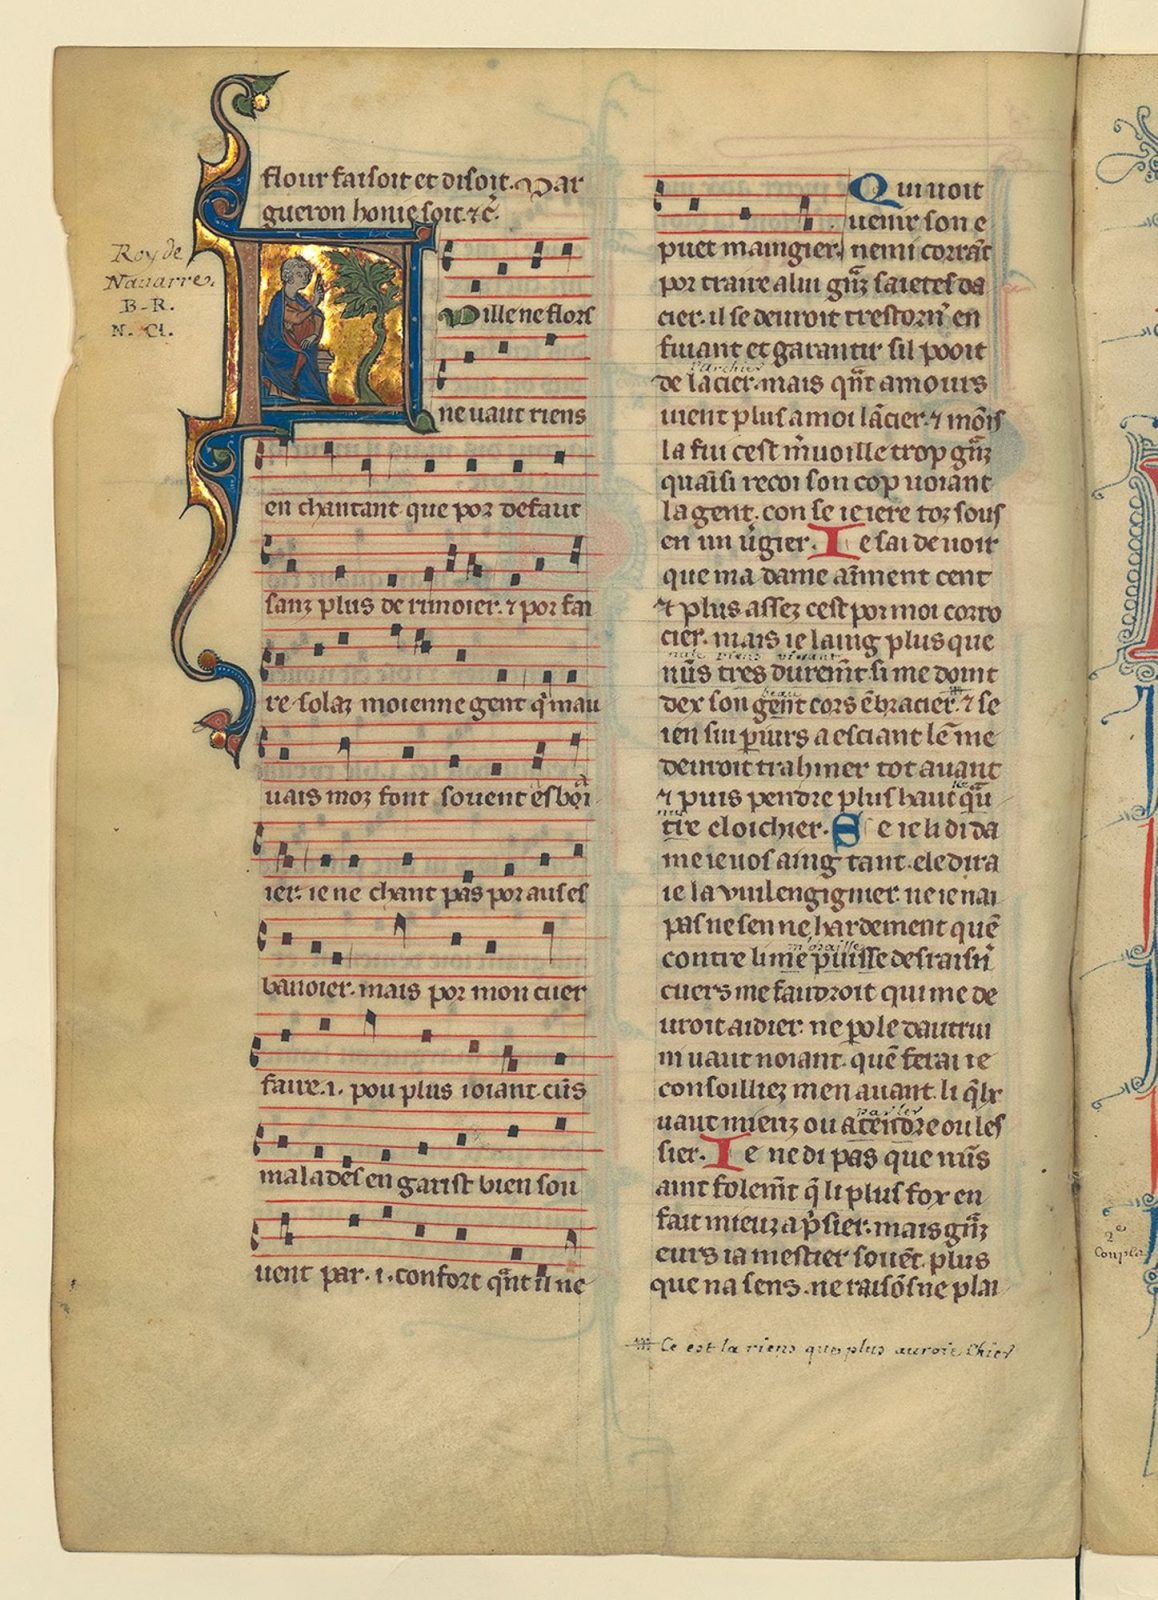 flour faisoit et disoit. Mar
gueron honie soit. ⁊c̃.
Roy de
Nauarre.
B-R.
N. Ct.
Fuille ne flors
ne uaut riens
en chantant que por defaut
sanz plus de rimoier. ⁊ por fai
re solaz moienne gent q̃ mau
uais moz font souent esbãi
ier. ie ne chant pas por aus es
banoier. mais por mon cuer
faire .i. pou plus ioiant. cũs
malades en garist bien sou
uent par .i. confort q̃nt il ne
puet maingier.
Qui uoit
uenir son e
nemi corrãt
por traire a lui gñz saietes da
cier. il se deuroit trestorñ en
fuiant et garantir sil pooit
l'archier
de lacier. mais q̃nt amours
uient plus a moi lãcier. ⁊ mõis
la fui cest m̃uoille trop gñz
quãsi recoi son cop uoiant
la gent. con se ie iere toz sous
en un ṽgier. Ie sai de uoir
que ma dame aiment cent
⁊ plus assez cest por moi corro
cier. mais ie laing plus que
nule riens viuant
nũs tres duremt̃ si me doint
beau
dex son gent cors ẽbracier. ⁊ se
ien sui piurs a esciant lẽ me
deuroit trahiner tot auant
⁊ puis pendre plus haut qũ
tre cloichier. Se ie li di da
me ie uos aing tant. ele dira
ie la vuil engignier. ne ie nai
pas ne sen ne hardement quẽ
contre li me puisse desraisñ
cuers me faudroit qui me de
uroit aidier. ne pole dautrui
ni uaut noiant. quẽ ferai ie
consoilliez men auant. li q̃lx
parler
uaut mieuz ou atendre ou les
sier. Ie ne di pas que nũs
aint folemt̃ q̃ li plus fox en
fait mieuz a p̃sier. mais gñz
eurs ia mestier souẽt. plus
que na sens. ne raisõs ne plai
Ce est la riens que plus auroie chier
2e
Couplet